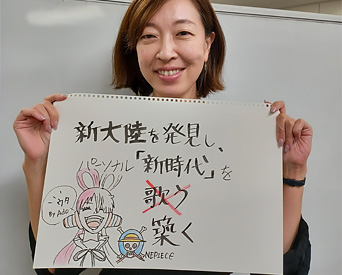 新大陸を発見し、
パーソナル「新時代」を
歌う
築く
ウタ
By Ado
ONEPIECE